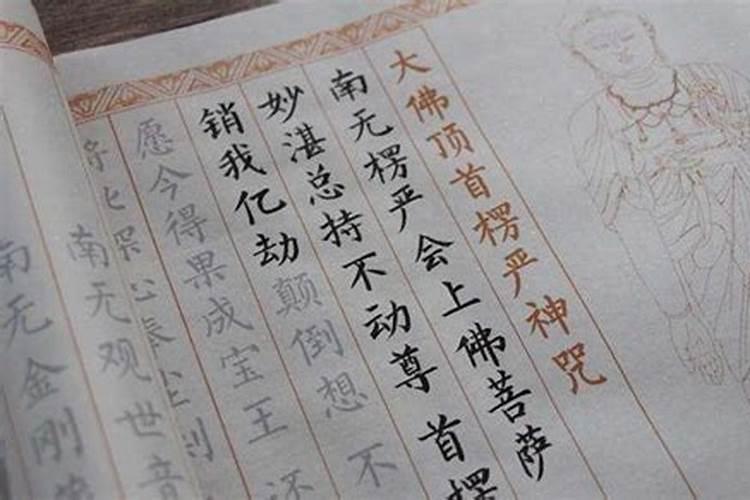 大佛顶首楞严神咒
南无楞严会上佛菩萨
妙湛总持不动尊 首楞
销我亿劫颠倒想 不
愿今得果成宝王 还
将此深心奉尘刹
南无观世音
南无金刚